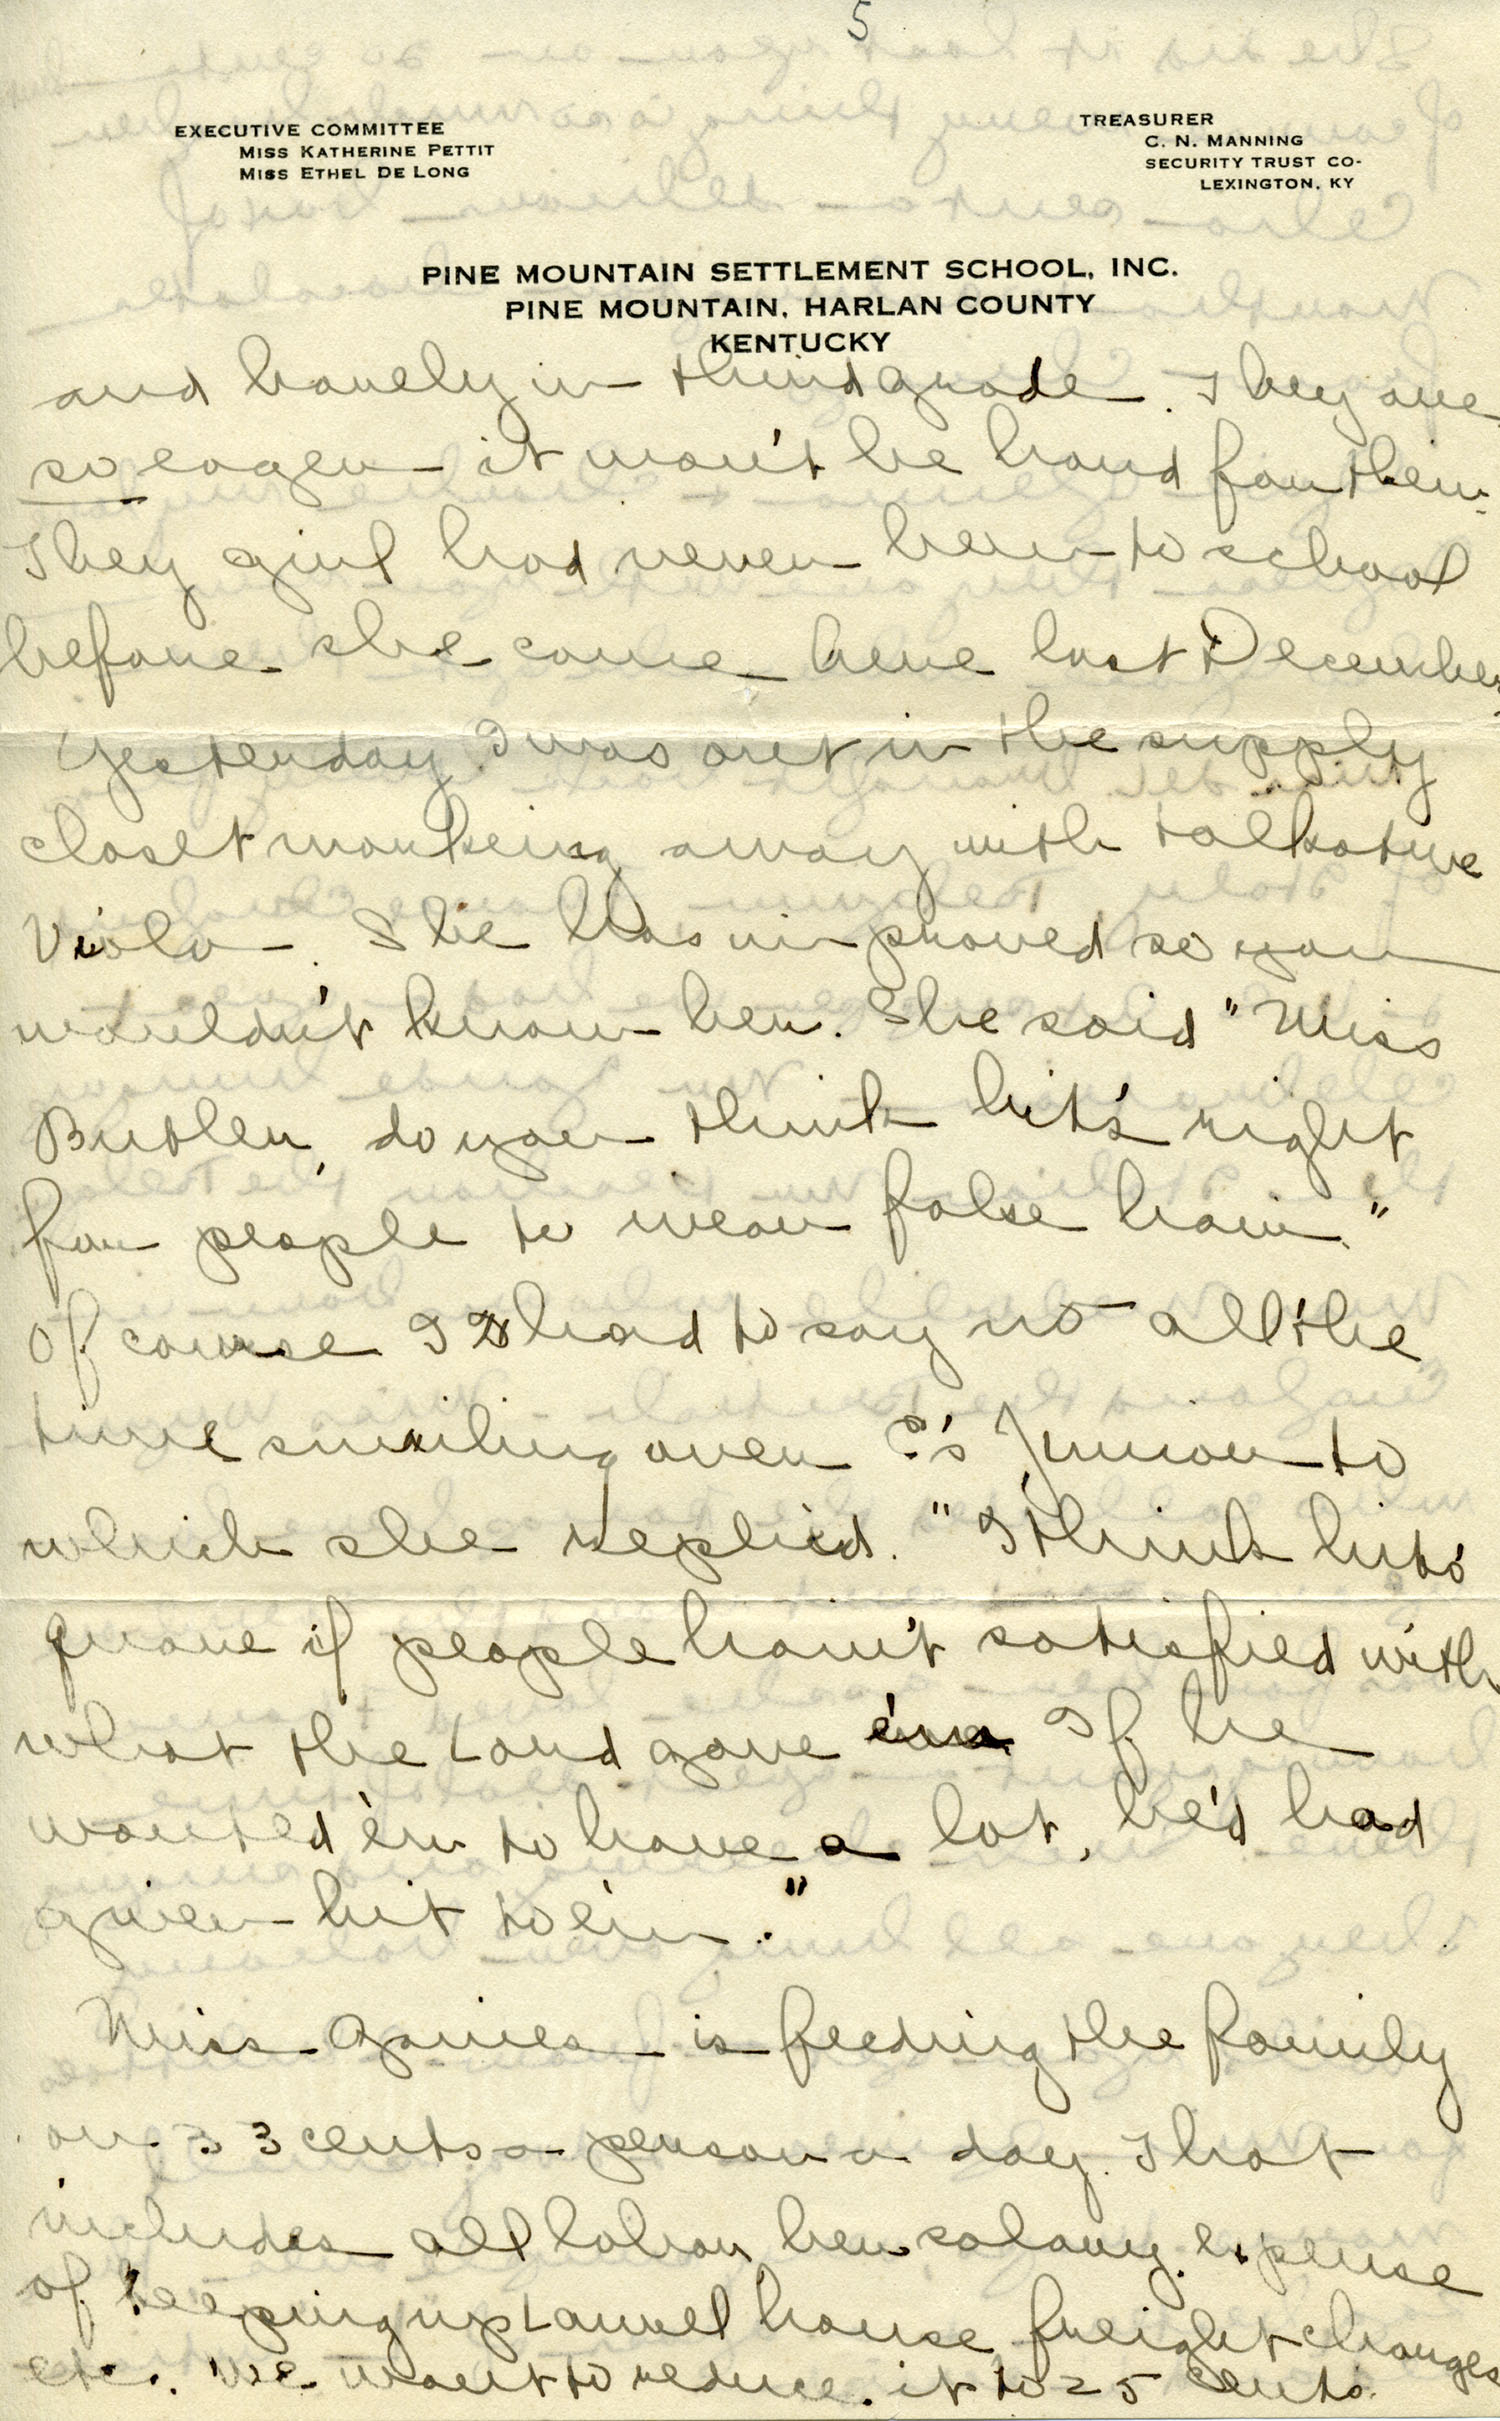 5
EXECUTIVE COMMITTEE
MISS KATHERINE PETTIT
MISS ETHEL DE LONG
TREASURER
C. N. MANNING
SECURITY TRUST CO.
LEXINGTON, KY
PINE MOUNTAIN SETTLEMENT SCHOOL, INC.
PINE MOUNTAIN, HARLAN COUNTY
KENTUCKY
and barely in third grade. They are
so eager it won't be hard for them.
They girl had never been to school
before she came here last December.
Yesterday I was out in the supply
closet working away with talkative
Viola. She has improved so you
wouldn't know her. She said "Miss
Butler, do you think hit's right
for people to wear false hair."
Of course I had to say no all the
time smiling over ?'s Junior to
which she replied. "I think hit's
quare if people hain't satisfied with
what the Lord gave 'em. If he
wanted 'em to have a lot, he'd had
given hit to 'em."
Miss Gaines is feeding the family
on 33 cents a person a day. That
includes all labor, her salary, expense
of keeping up Laurel house, freight charges
etc. We want to reduce it to 25 cents.